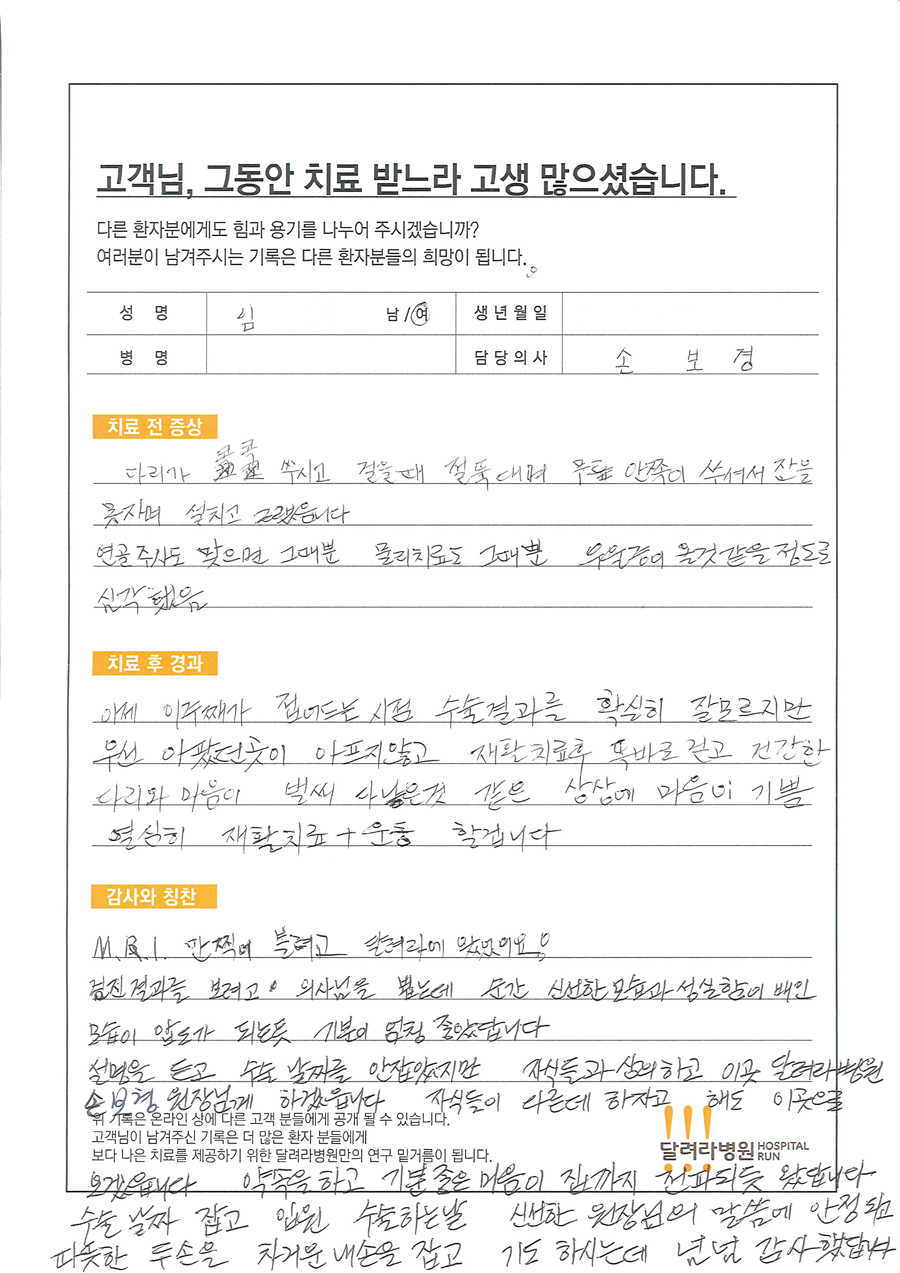 고객님, 그동안 치료 받느라 고생 많으셨습니다.
다른 환자분에게도 힘과 용기를 나누어 주시겠습니까?
여러분이 남겨주시는 기록은 다른 환자분들의 희망이 됩니다.
성 명 임 남/여 생년월일
병 명 담당의사 손 보 경
치료 전 증상
다리가 콕콕 쑤시고 걸을때 절뚝대며 무릎 안쪽이 쑤셔서 잠을
못자며 설치고 그랬읍니다
연골주사도 맞으면 그때뿐 물리치료도 그때뿐 우울증이 올것같을정도로
심각했음
치료 후 경과
이제 이주째가 접어드는 시점 수술결과를 확실히 잘모르지만
우선 아팠던곳이 아프지않고 재활치료후 똑바로 걷고 건강한
다리와 마음이 벌써 다낳은것 같은 상상에 마음이 기쁨
열심히 재활치료+운동 할겁니다
감사와 칭찬
M.R.I. 판찍어 볼려고 달려라에 왔었어요
검진결과를 보려고 의사님을 뵙는데 순간 신선한모습과 성실함이 배인
모습이 압도가 되는듯 기분이 엄청 좋았답니다
설명을 듣고 수술 날짜를 안잡았지만 자식들과 상의하고 이곳 달려라병원
손보경 원장님께 하겠읍니다 자식들이 다른데 하자고 해도 이곳으로
위 기록은 온라인 상에 다른 고객 분들에게 공개 될 수 있습니다.
고객님이 남겨주신 기록은 더 많은 환자 분들에게
보다 나은 치료를 제공하기 위한 달려라병원만의 연구 밑거름이 됩니다.
달려라병원 HOSPITAL RUN
오겠읍니다 약속을하고 기분좋은 마음이 집까지 전파되듯 왔답니다
수술 날짜 잡고 입원 수술하는날 신선한 원장님의 말씀에 안정되고
따뜻한 두손을 차거운 내손을 잡고 기도 하시는데 넘넘 감사했답니다